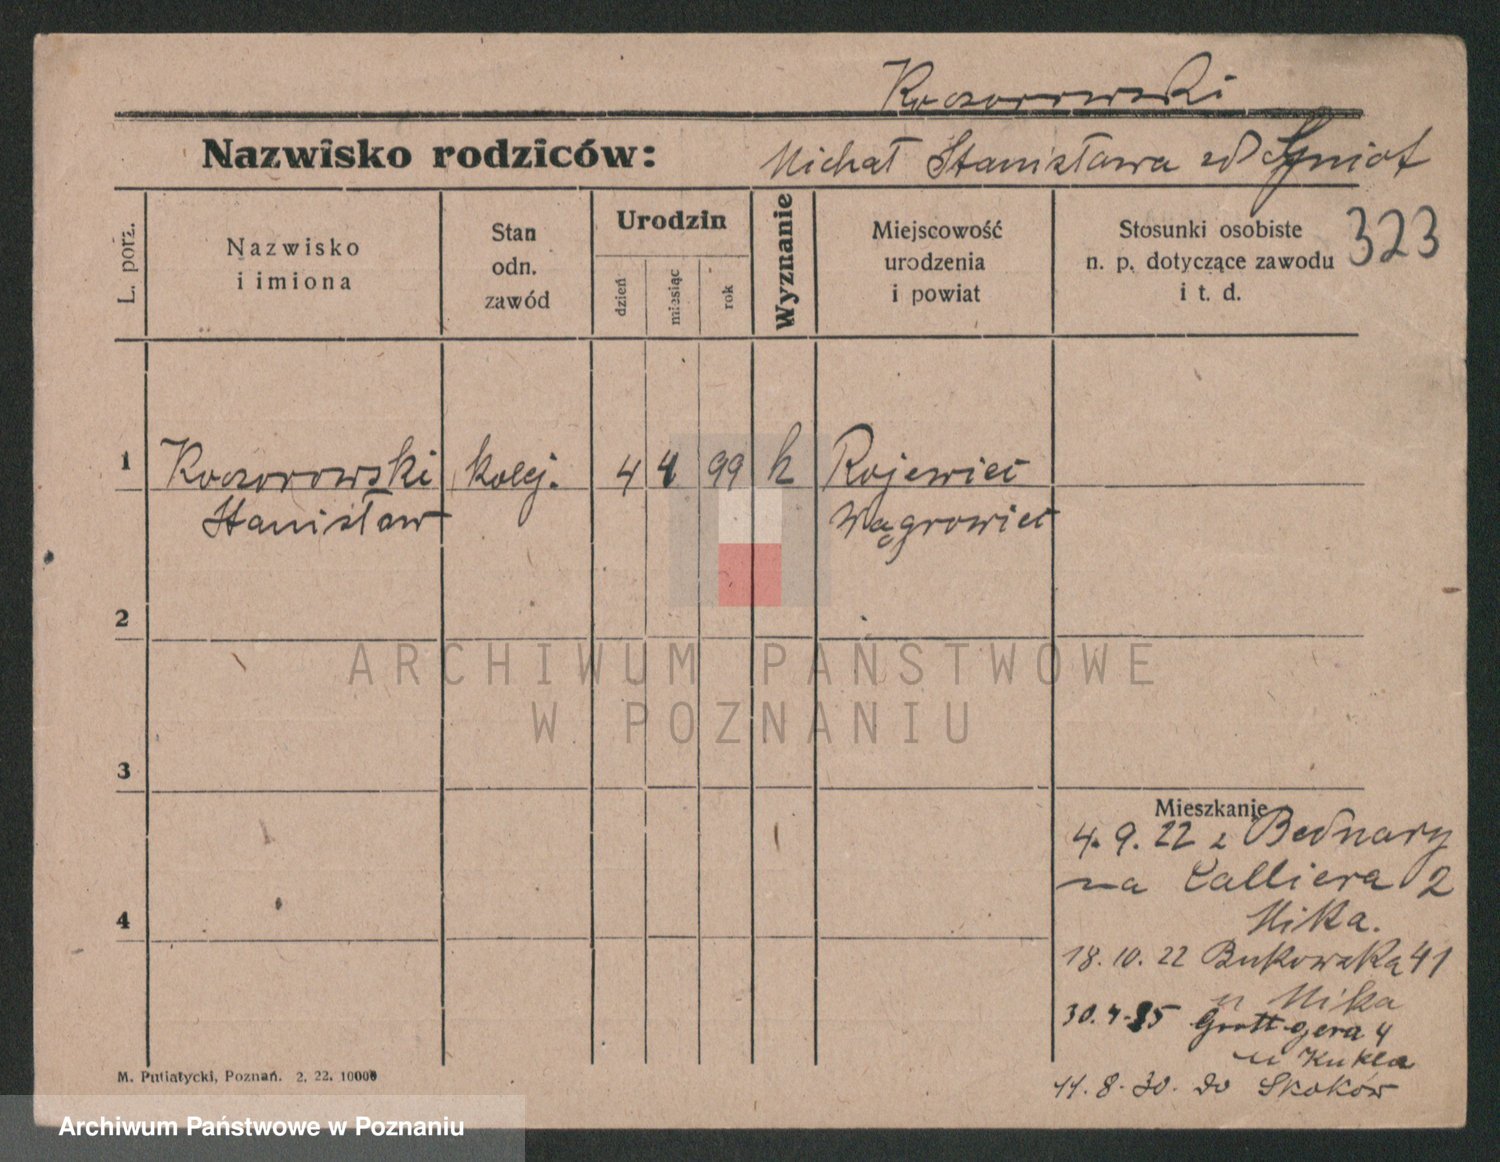 Koczorowski
Nazwisko rodziców: Michał Stanisława zd Sgniot
323
L. porz.
Nazwisko
i imiona
Stan
odn.
zawód
Urodzin
dzień
miesiąc
rok
Wyznanie
Miejscowość
urodzenia
i powiat
Stosunki osobiste
n. p. dotyczące zawodu
i t. d.
1 Koczorowski kolej. 4 4 99 k Rojewiec
Stanisław Wągrowiec
2
3
4
Mieszkanie
4. 9. 22 z Bednary
na Calliera 2
Mika.
18. 10. 22 Bukowska 41
u Mika
30. 4. 25 Grottgera 4
u Kukla
11. 8. 30. do Skoków
M. Putiatycki, Poznań. 2. 22. 10000
ARCHIWUM PAŃSTWOWE
W POZNANIU
Archiwum Państwowe w Poznaniu